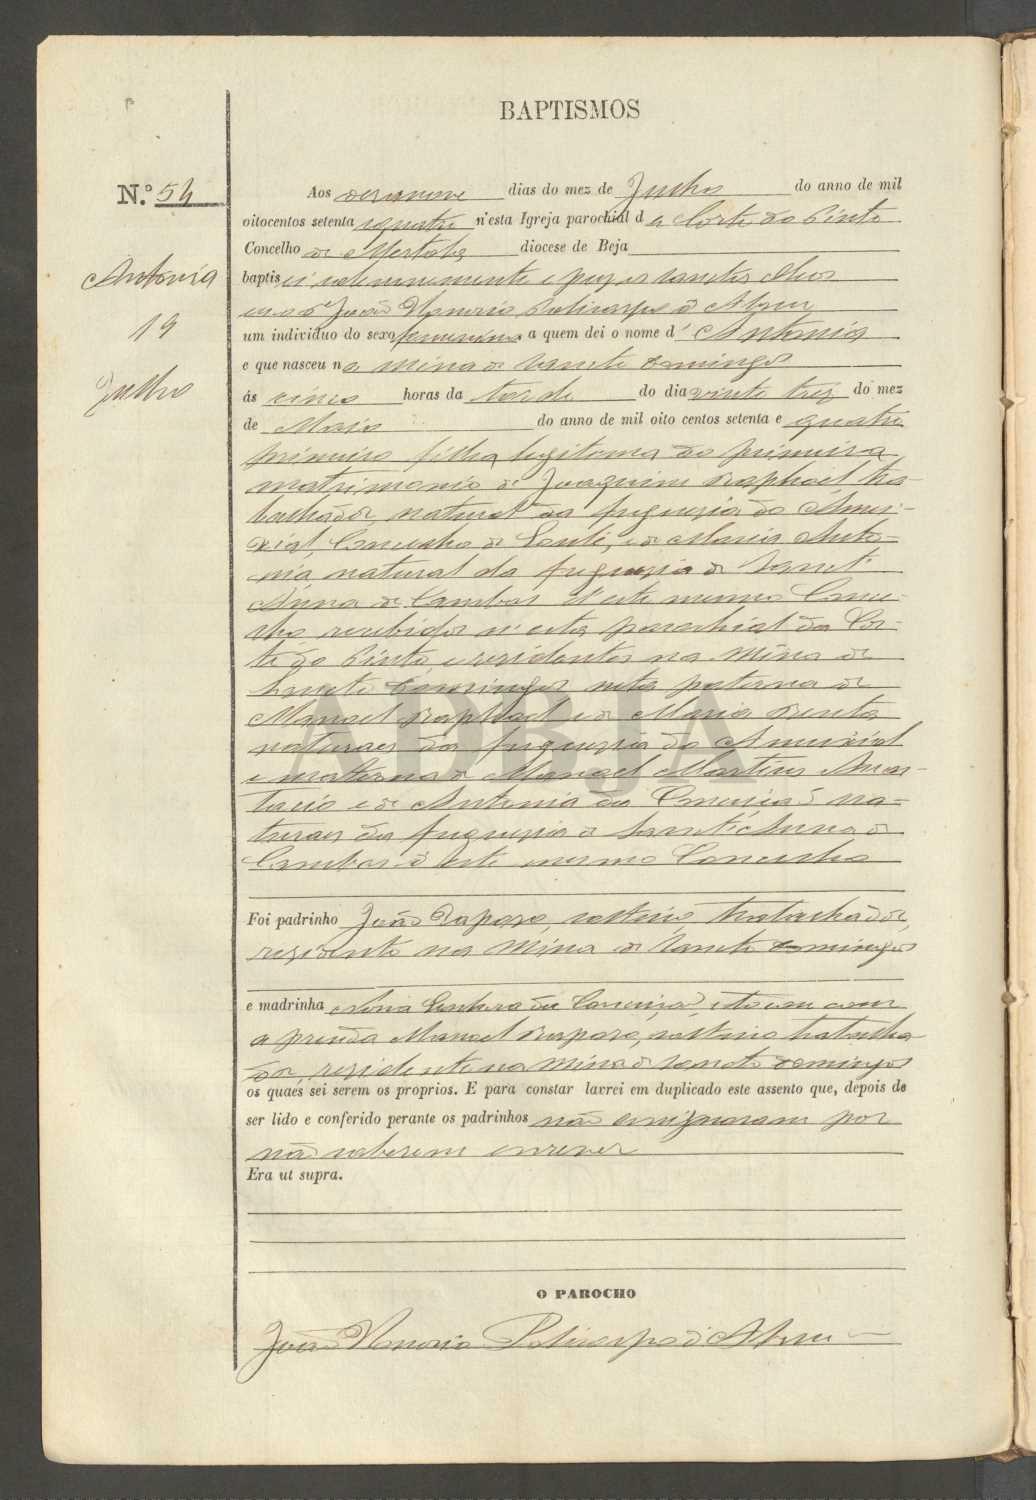 BAPTISMOS
N.º 54
Antonia
19
Julho
Aos desanove dias do mez de Julho do anno de mil
oitocentos setenta e quatro n'esta Igreja parochial da Corte do Pinto
Concelho de Mertola diocese de Beja
baptisei solemnemente e puz os sanctos Oleos
João Policarpo d'Abreu
um individuo do sexo femenino a quem dei o nome d' Antonia
e que nasceu na mina de Sancto Domingos
ás cinco horas da tarde do dia vinte trez do mez
de Maio do anno de mil oito centos setenta e quatro
primeiro filha legitema do primeiro
matrimonio de Joaquim Raphael tra-
balhador, natural da freguezia do Amei-
xial, Concelho de Loulé, e de Maria Anto-
nia natural da freguezia de Sant'
Anna de Cambas d'este mesmo Conce-
lho recebidos n'esta parochial da Cor-
te do Pinto, e residentes na Mina de
Sancto Domingos neta paterna de
Manoel Raphael e de Maria Benta
naturaes da freguezia do Ameixial
e materna de Manoel Martins
e de Antonia da Conceição na-
turaes da freguezia de Sant'Anna de
Cambas d'este mesmo Concelho
Foi padrinho João Raposo, solteiro, trabalhador,
residente na Mina de Sancto Domingos
e madrinha Nossa Senhora da Conceição, e tocou com
a prenda Manoel Raposo, solteiro trabalha
dor, residente na Mina de Sancto Domingos
os quaes sei serem os proprios. E para constar lavrei em duplicado este assento que, depois de
ser lido e conferido perante os padrinhos não assignaram por
não saberem escrever
Era ut supra.
O PAROCHO
João Policarpo d'Abreu
ADBJA